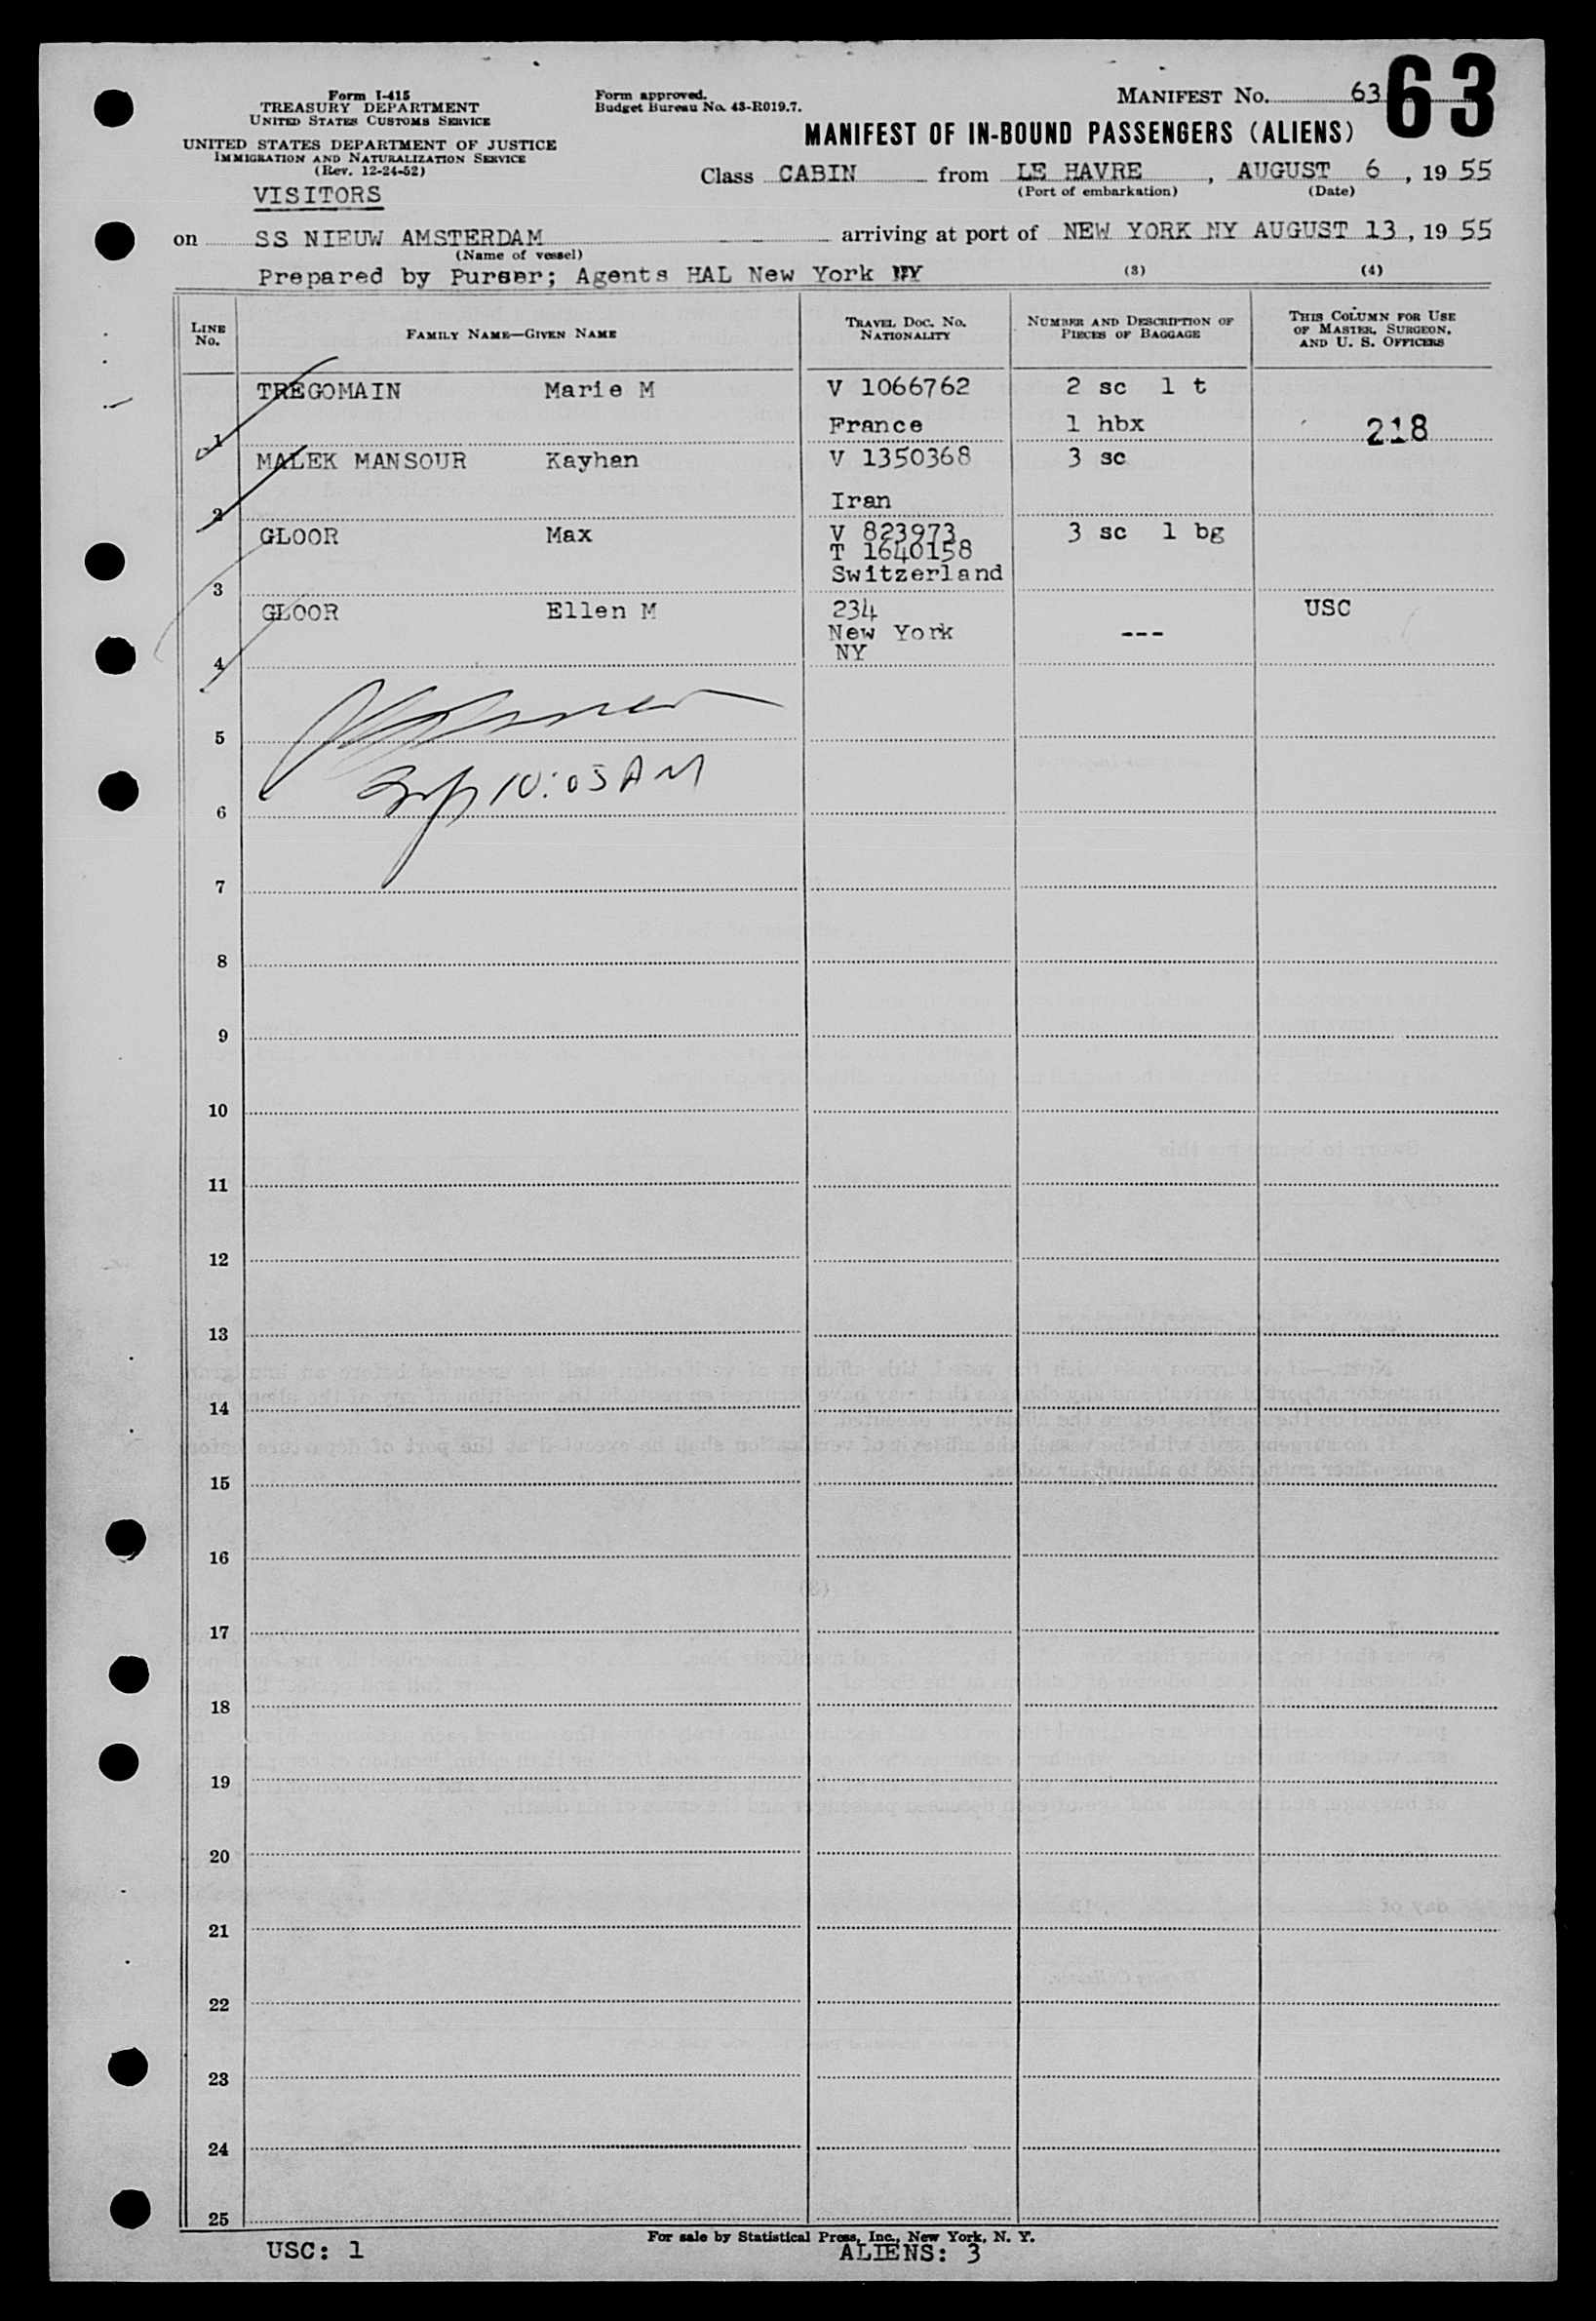 63
Form I-415
TREASURY DEPARTMENT
UNITED STATES CUSTOMS SERVICE
UNITED STATES DEPARTMENT OF JUSTICE
IMMIGRATION AND NATURALIZATION SERVICE
(Rev. 12-24-52)
VISITORS
Form approved.
Budget Bureau No. 43-R019.7.
MANIFEST NO. 63
MANIFEST OF IN-BOUND PASSENGERS (ALIENS)
Class CABIN from LE HAVRE, AUGUST 6, 19 55
(Port of embarkation) (Date)
on SS NIEUW AMSTERDAM arriving at port of NEW YORK NY AUGUST 13, 19 55
(Name of vessel)
Prepared by Purser; Agents HAL New York NY (3) (4)
LINE NO. FAMILY NAME—GIVEN NAME TRAVEL DOC. NO. NATIONALITY NUMBER AND DESCRIPTION OF PIECES OF BAGGAGE THIS COLUMN FOR USE OF MASTER, SURGEON, AND U. S. OFFICERS
TREGOMAIN Marie M V 1066762 2 sc 1 t
1 France 1 hbx 218
MALEK MANSOUR Kayhan V 1350368 3 sc
2 Iran
GLOOR Max V 823973 3 sc 1 bg
T 1640158
3 Switzerland
GLOOR Ellen M 234 USC
New York ---
4 NY
5
10:05 AM
6
7
8
9
10
11
12
13
14
15
16
17
18
19
20
21
22
23
24
25
For sale by Statistical Press, Inc., New York, N. Y.
USC: 1 ALIENS: 3